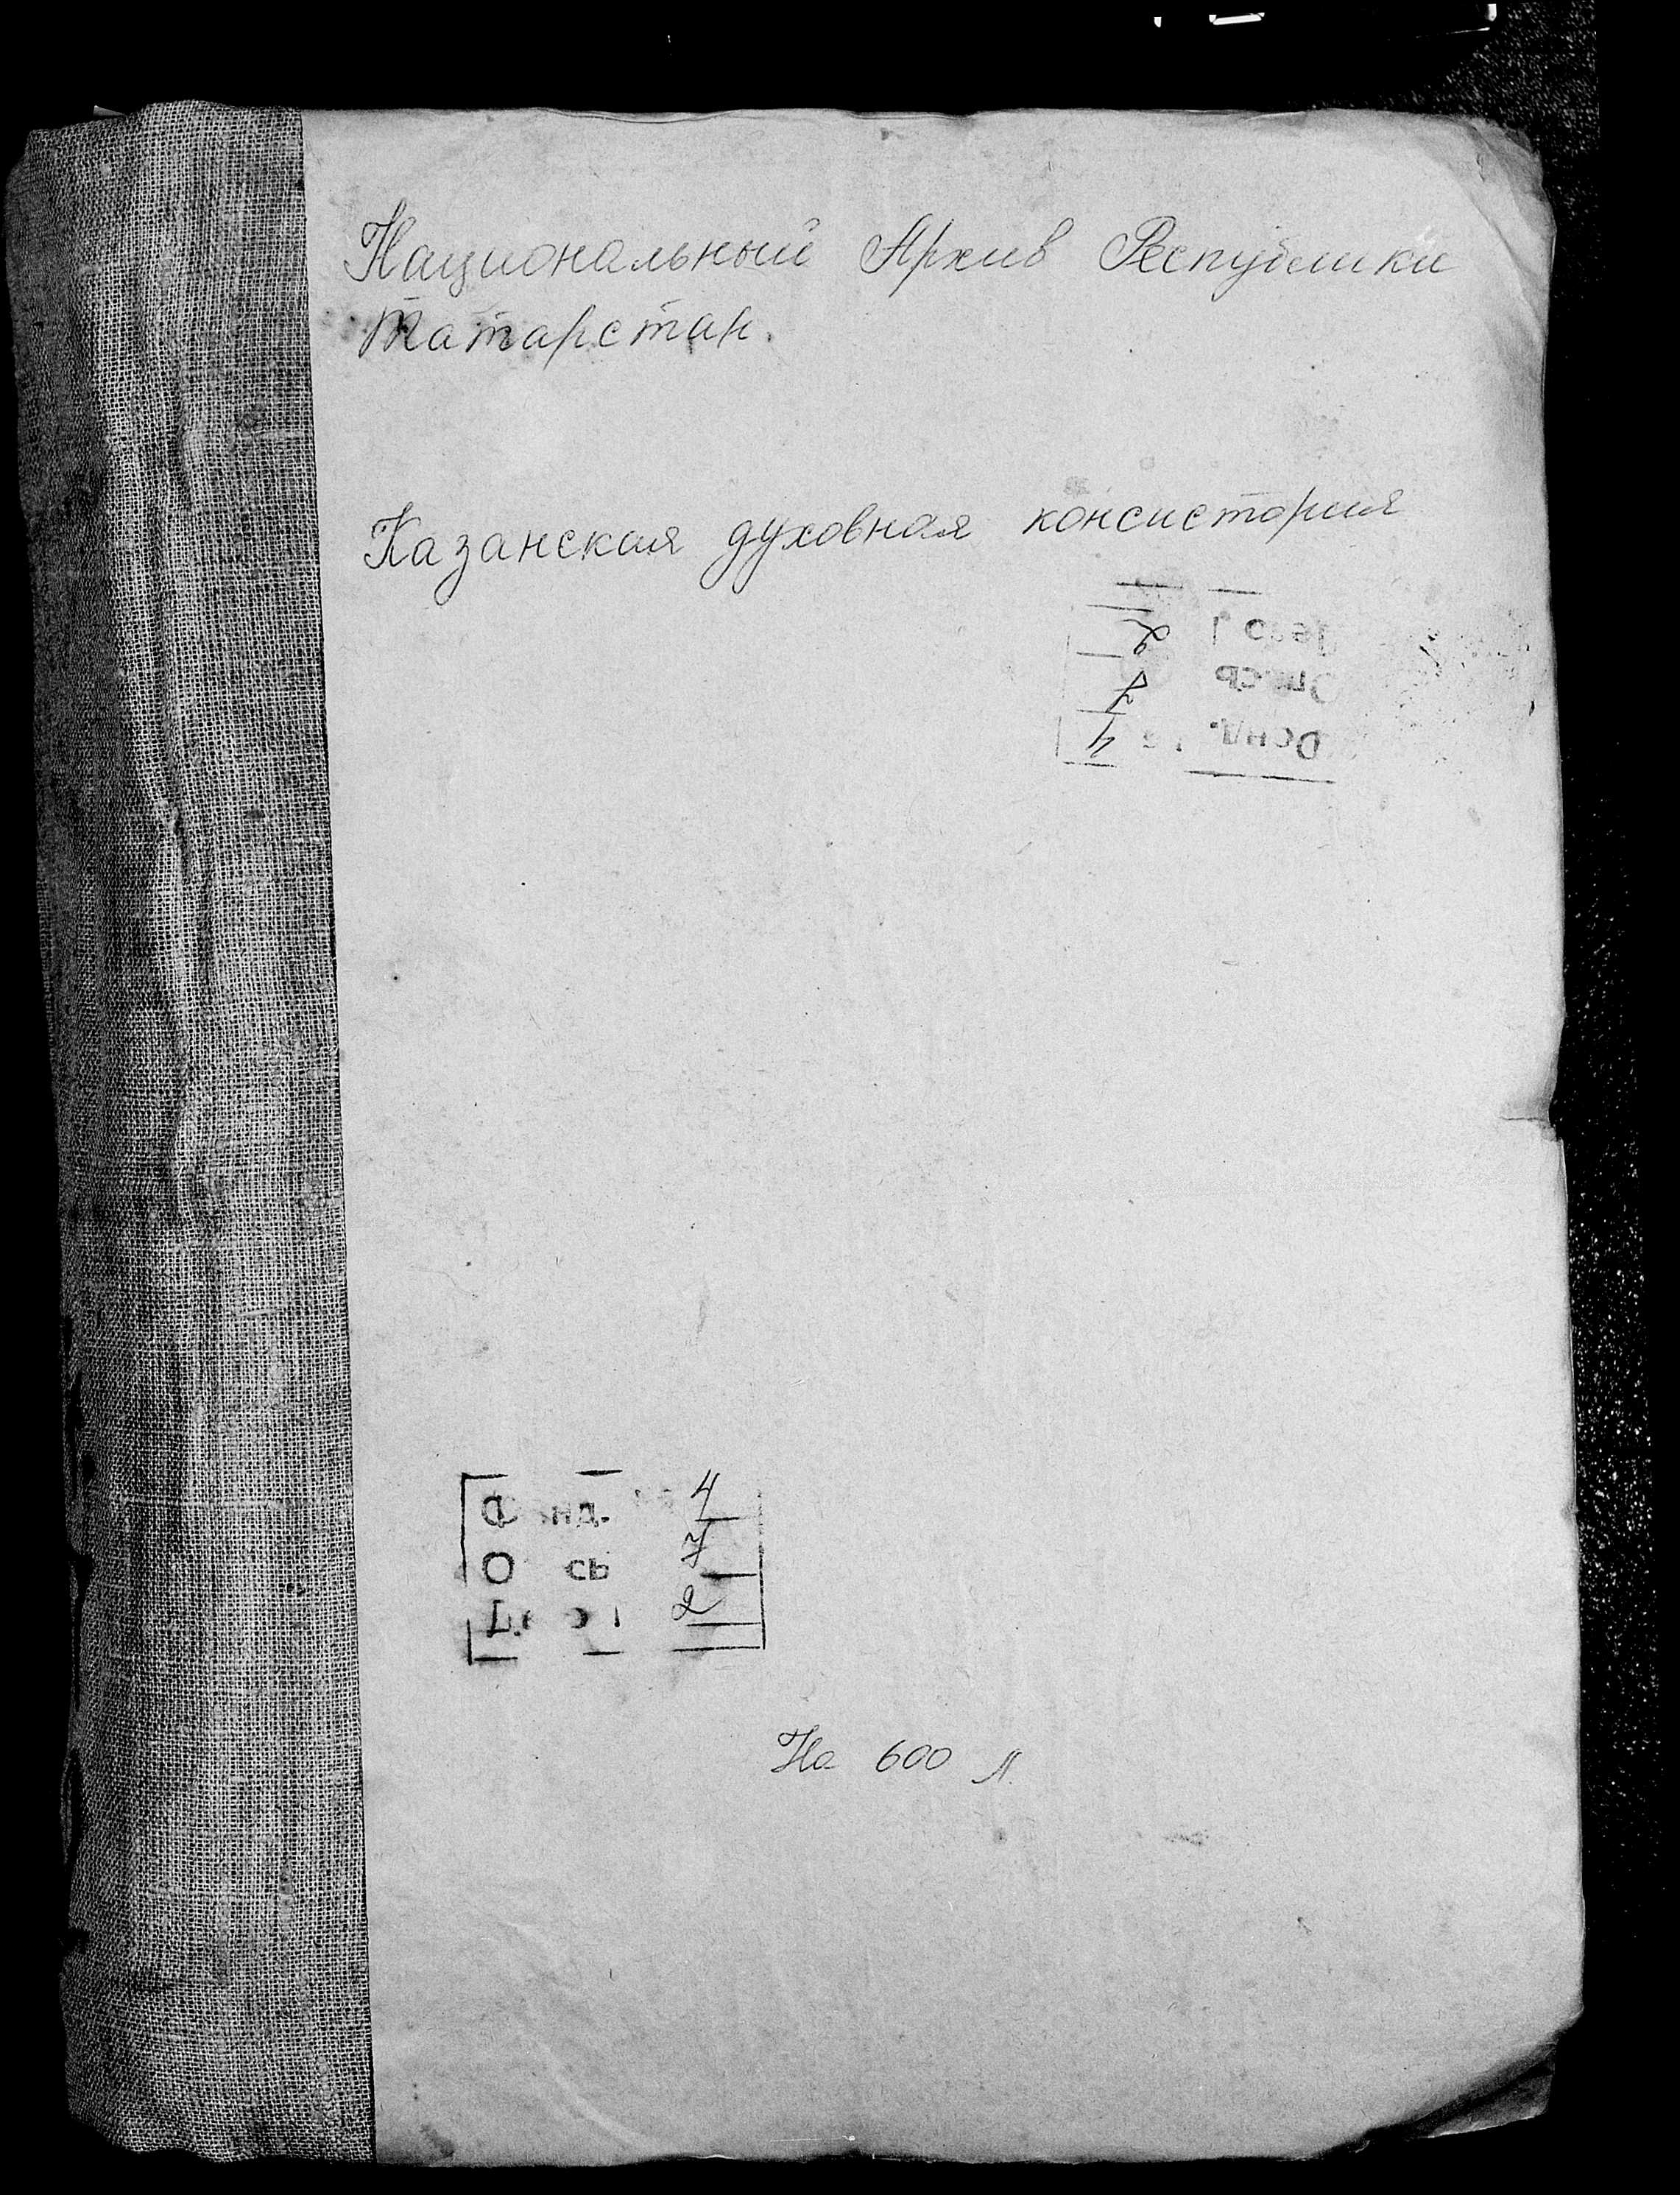 Национальный Архив Республики
Татарстан.
Казанская духовная консистория
Фонд. 4
Опись 7
Дело 2
На 600 л.